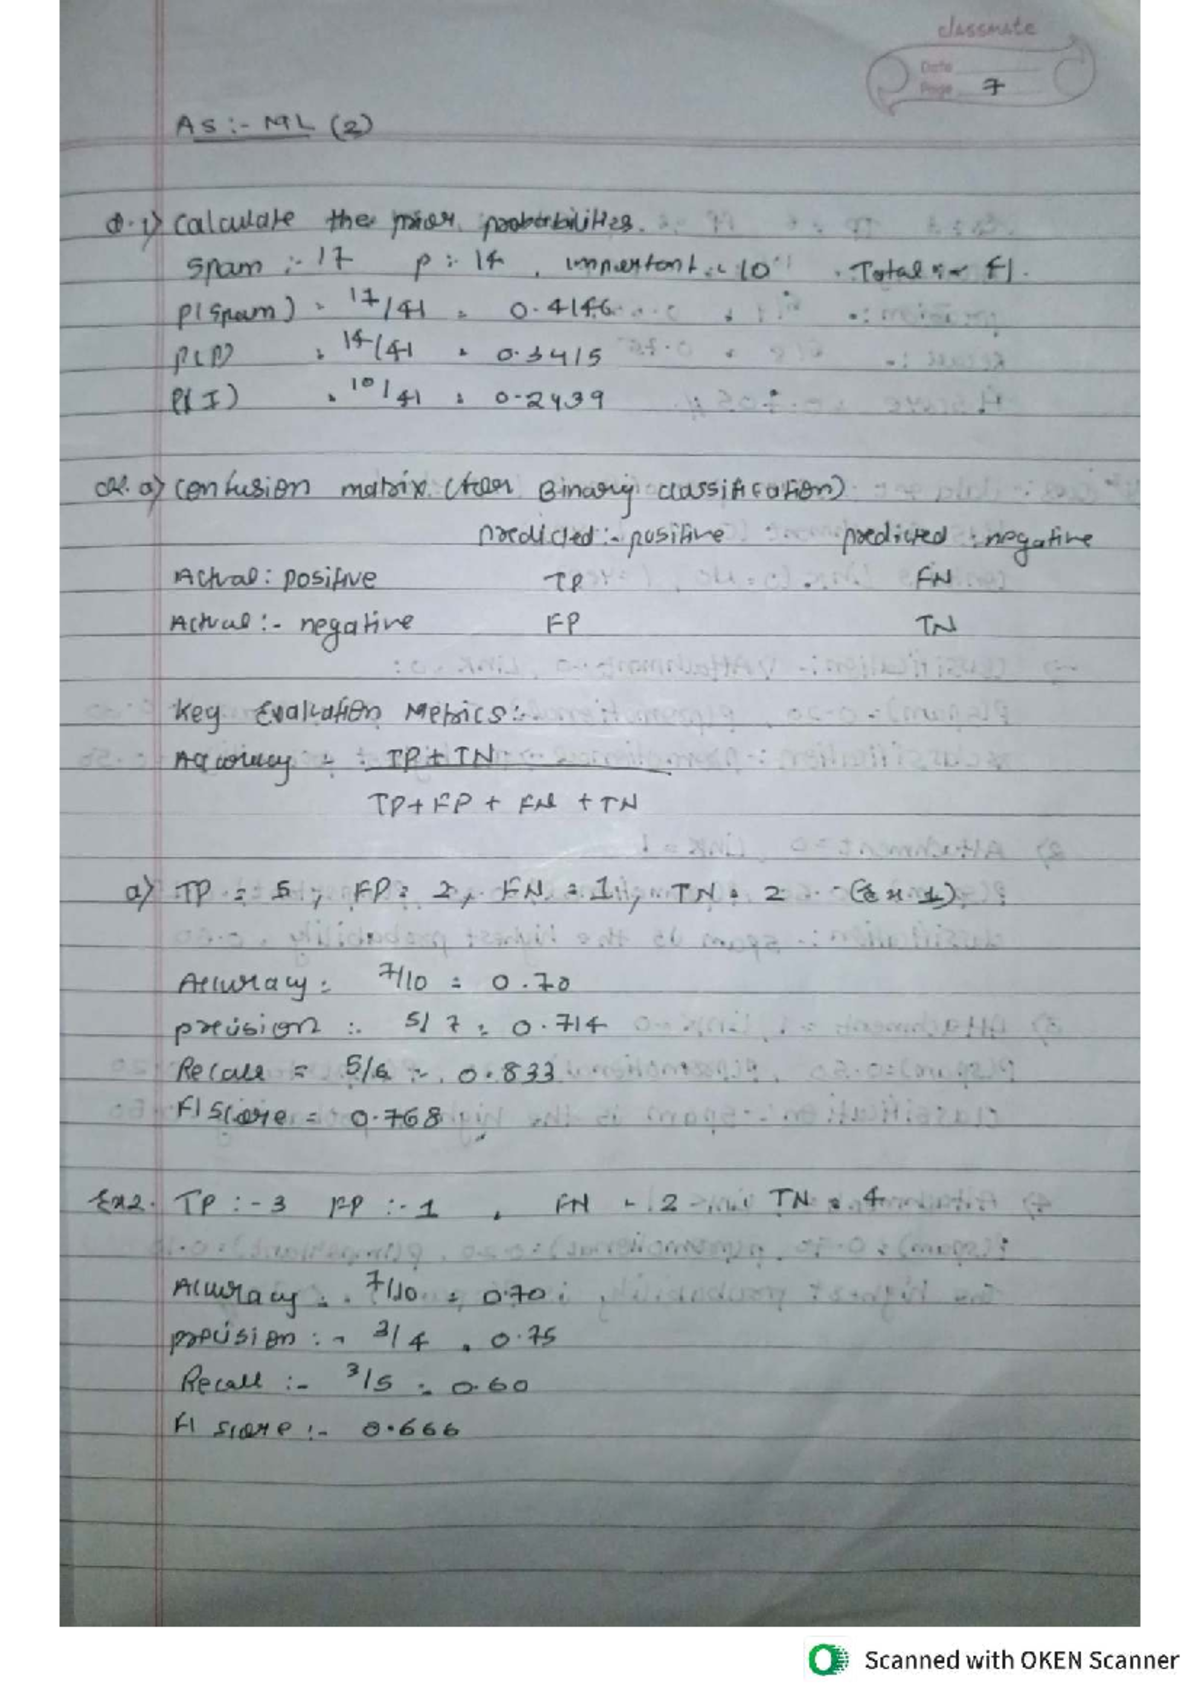 classmate
Date
Page 7
AS :- ML (2)
Q.1) Calculate the prior probabilities.
Spam :- 17 P :- 14 , important :- 10 . Total :- 41.
P(Spam) = 17/41 = 0.4146
P(P) = 14/41 = 0.3415
P(I) = 10/41 = 0.2439
Q2. a) Confusion matrix (for Binary classification)
predicted :- positive predicted : negative
Actual : positive TP FN
Actual :- negative FP TN
Key Evaluation Metrics :-
Accuracy = TP + TN
TP + FP + FN + TN
a) TP = 5 , FP = 2 , FN = 1 , TN = 2 (Ex 1)
Accuracy = 7/10 = 0.70
precision :- 5/7 = 0.714
Recall = 5/6 = 0.833
F1 Score = 0.768
Ex2. TP :- 3 FP :- 1 , FN - 2 TN = 4
Accuracy = 7/10 = 0.70
precision :- 3/4 = 0.75
Recall :- 3/5 = 0.60
F1 score :- 0.666
Scanned with OKEN Scanner